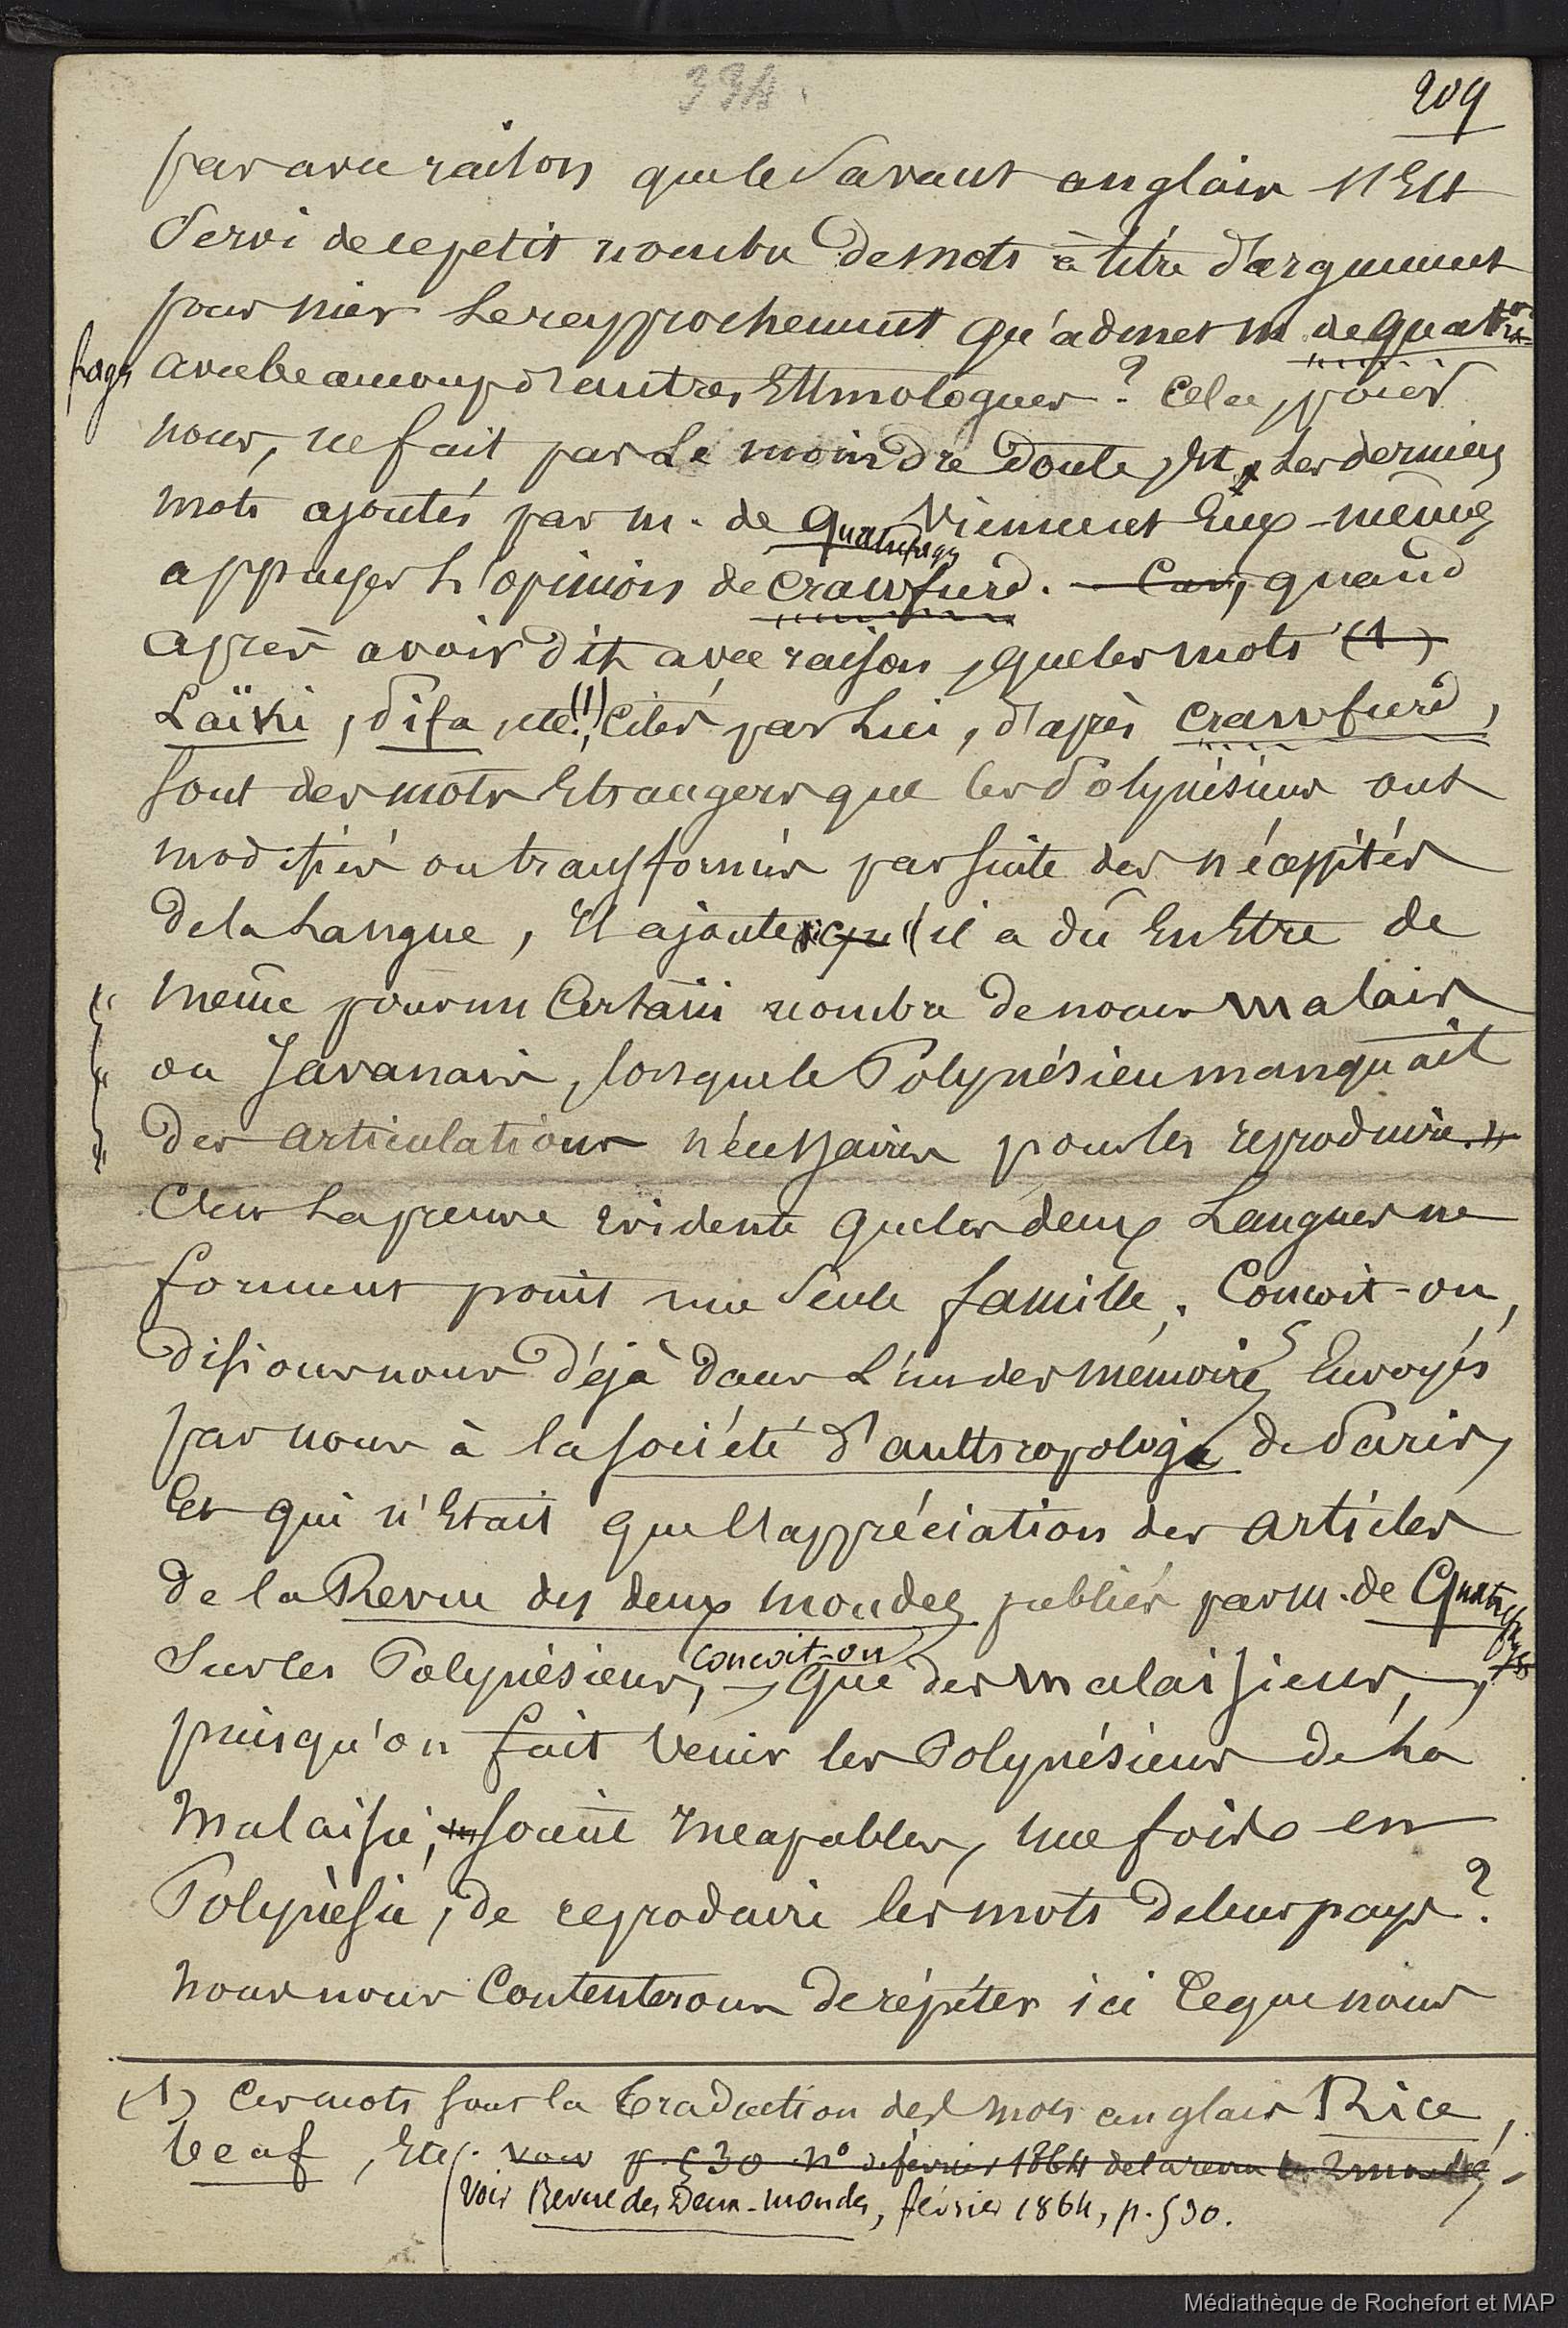 394.
209
pas avec raison que le savant anglais s'est
servi de ce petit nombre de mots à titre d'argument
pour nier le rapprochement qu'admet M. de Quatre-
fages avec beaucoup d'autres Ethnologues ? Cela, pour
nous, ne fait pas le moindre doute, et les derniers
mots ajoutés par M. de Quatrefages viennent eux-mêmes
appuyer l'opinion de Crawfurd. — Car, quand
après avoir dit, avec raison, que les mots (1)
Laïki, Pifa, etc. (1), cités par lui, d'après Crawfurd,
sont des mots étrangers que les Polynésiens ont
modifiés ou transformés par suite des nécessités
de la langue, il ajoute qu' « il a dû en être de
même pour un certain nombre de noms malais
ou Javanais, lorsque le Polynésien manquait
des articulations nécessaires pour les reproduire. »
C'est la preuve évidente que les deux langues ne
forment point une seule famille. Conçoit-on,
disions nous déjà dans l'un des mémoires envoyés
par nous à la Société d'anthropologie de Paris,
et qui n'était que l'appréciation des articles
de la Revue des deux mondes publiés par M. de Quatrefages
sur les Polynésiens, conçoit-on que des malaisiens,
puisqu'on fait venir les Polynésiens de la
Malaisie, soient incapables, une fois en
Polynésie, de reproduire les mots de leur pays ?
Nous nous contenterons de répéter ici ce que nous
(1) Ces mots sont la traduction des mots anglais Rice,
beaf, etc. voir p. 530 n° de février 1864 de la revue des 2 mondes.
Voir Revue des Deux-Mondes, février 1864, p. 530.
Médiathèque de Rochefort et MAP